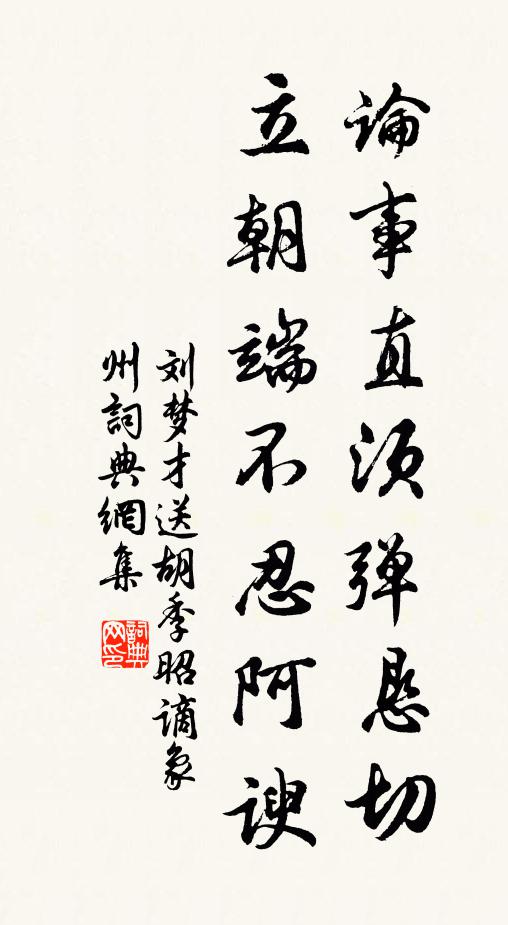 論事直须弹恳切
立朝端不忍阿諛
刘梦才送胡季昭謫象
州詞典網集
詞典
网印